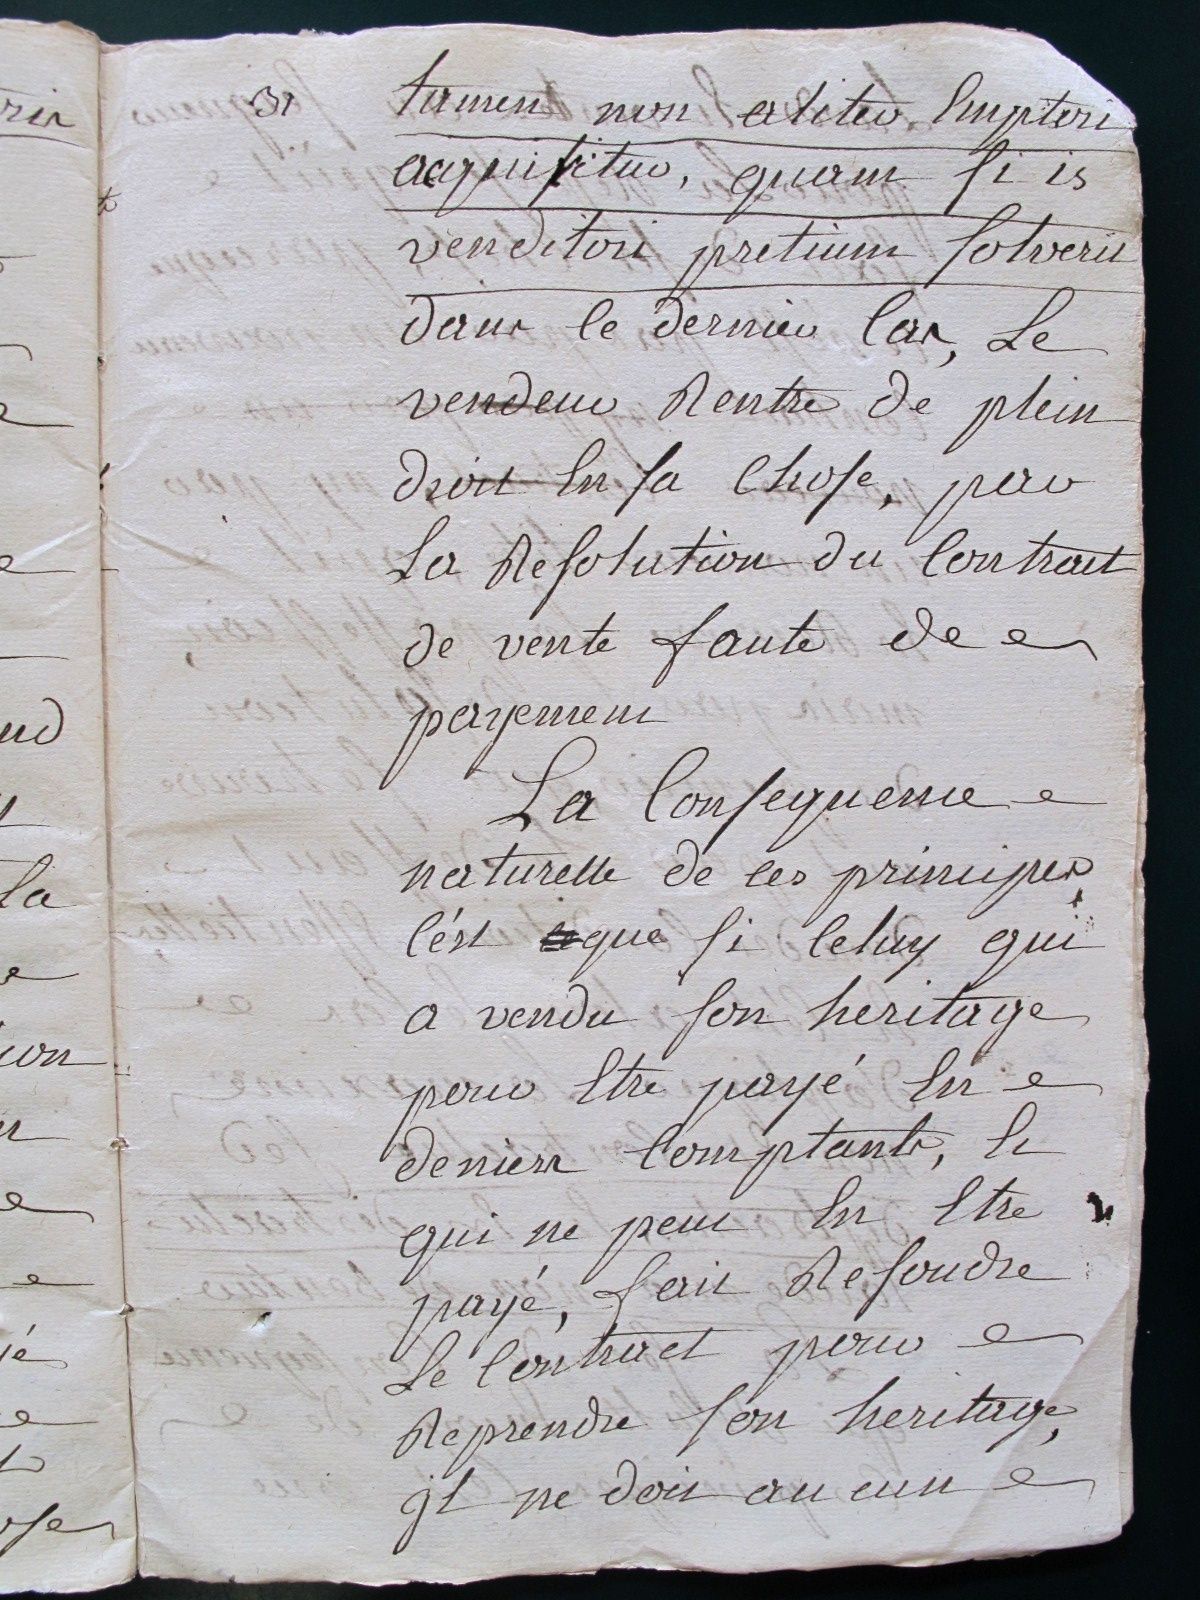 31
tamen non aliter Emptori
acquisitur, quam si is
venditori pretium solverit
dans le dernier Cas, Le
vendeur Rentre de plein
droit En sa Chose, par
La Resolution du Contrait
de vente faute de
payement
La Consequence
naturelle de ces principes
C'ést que si Celuy qui
a vendu son heritage
pour Etre payé En
deniers Comptants, Et
qui ne peut En Etre
payé, fait Resoudre
Le Contract pour
Reprendre son heritage,
jl ne doit aucun